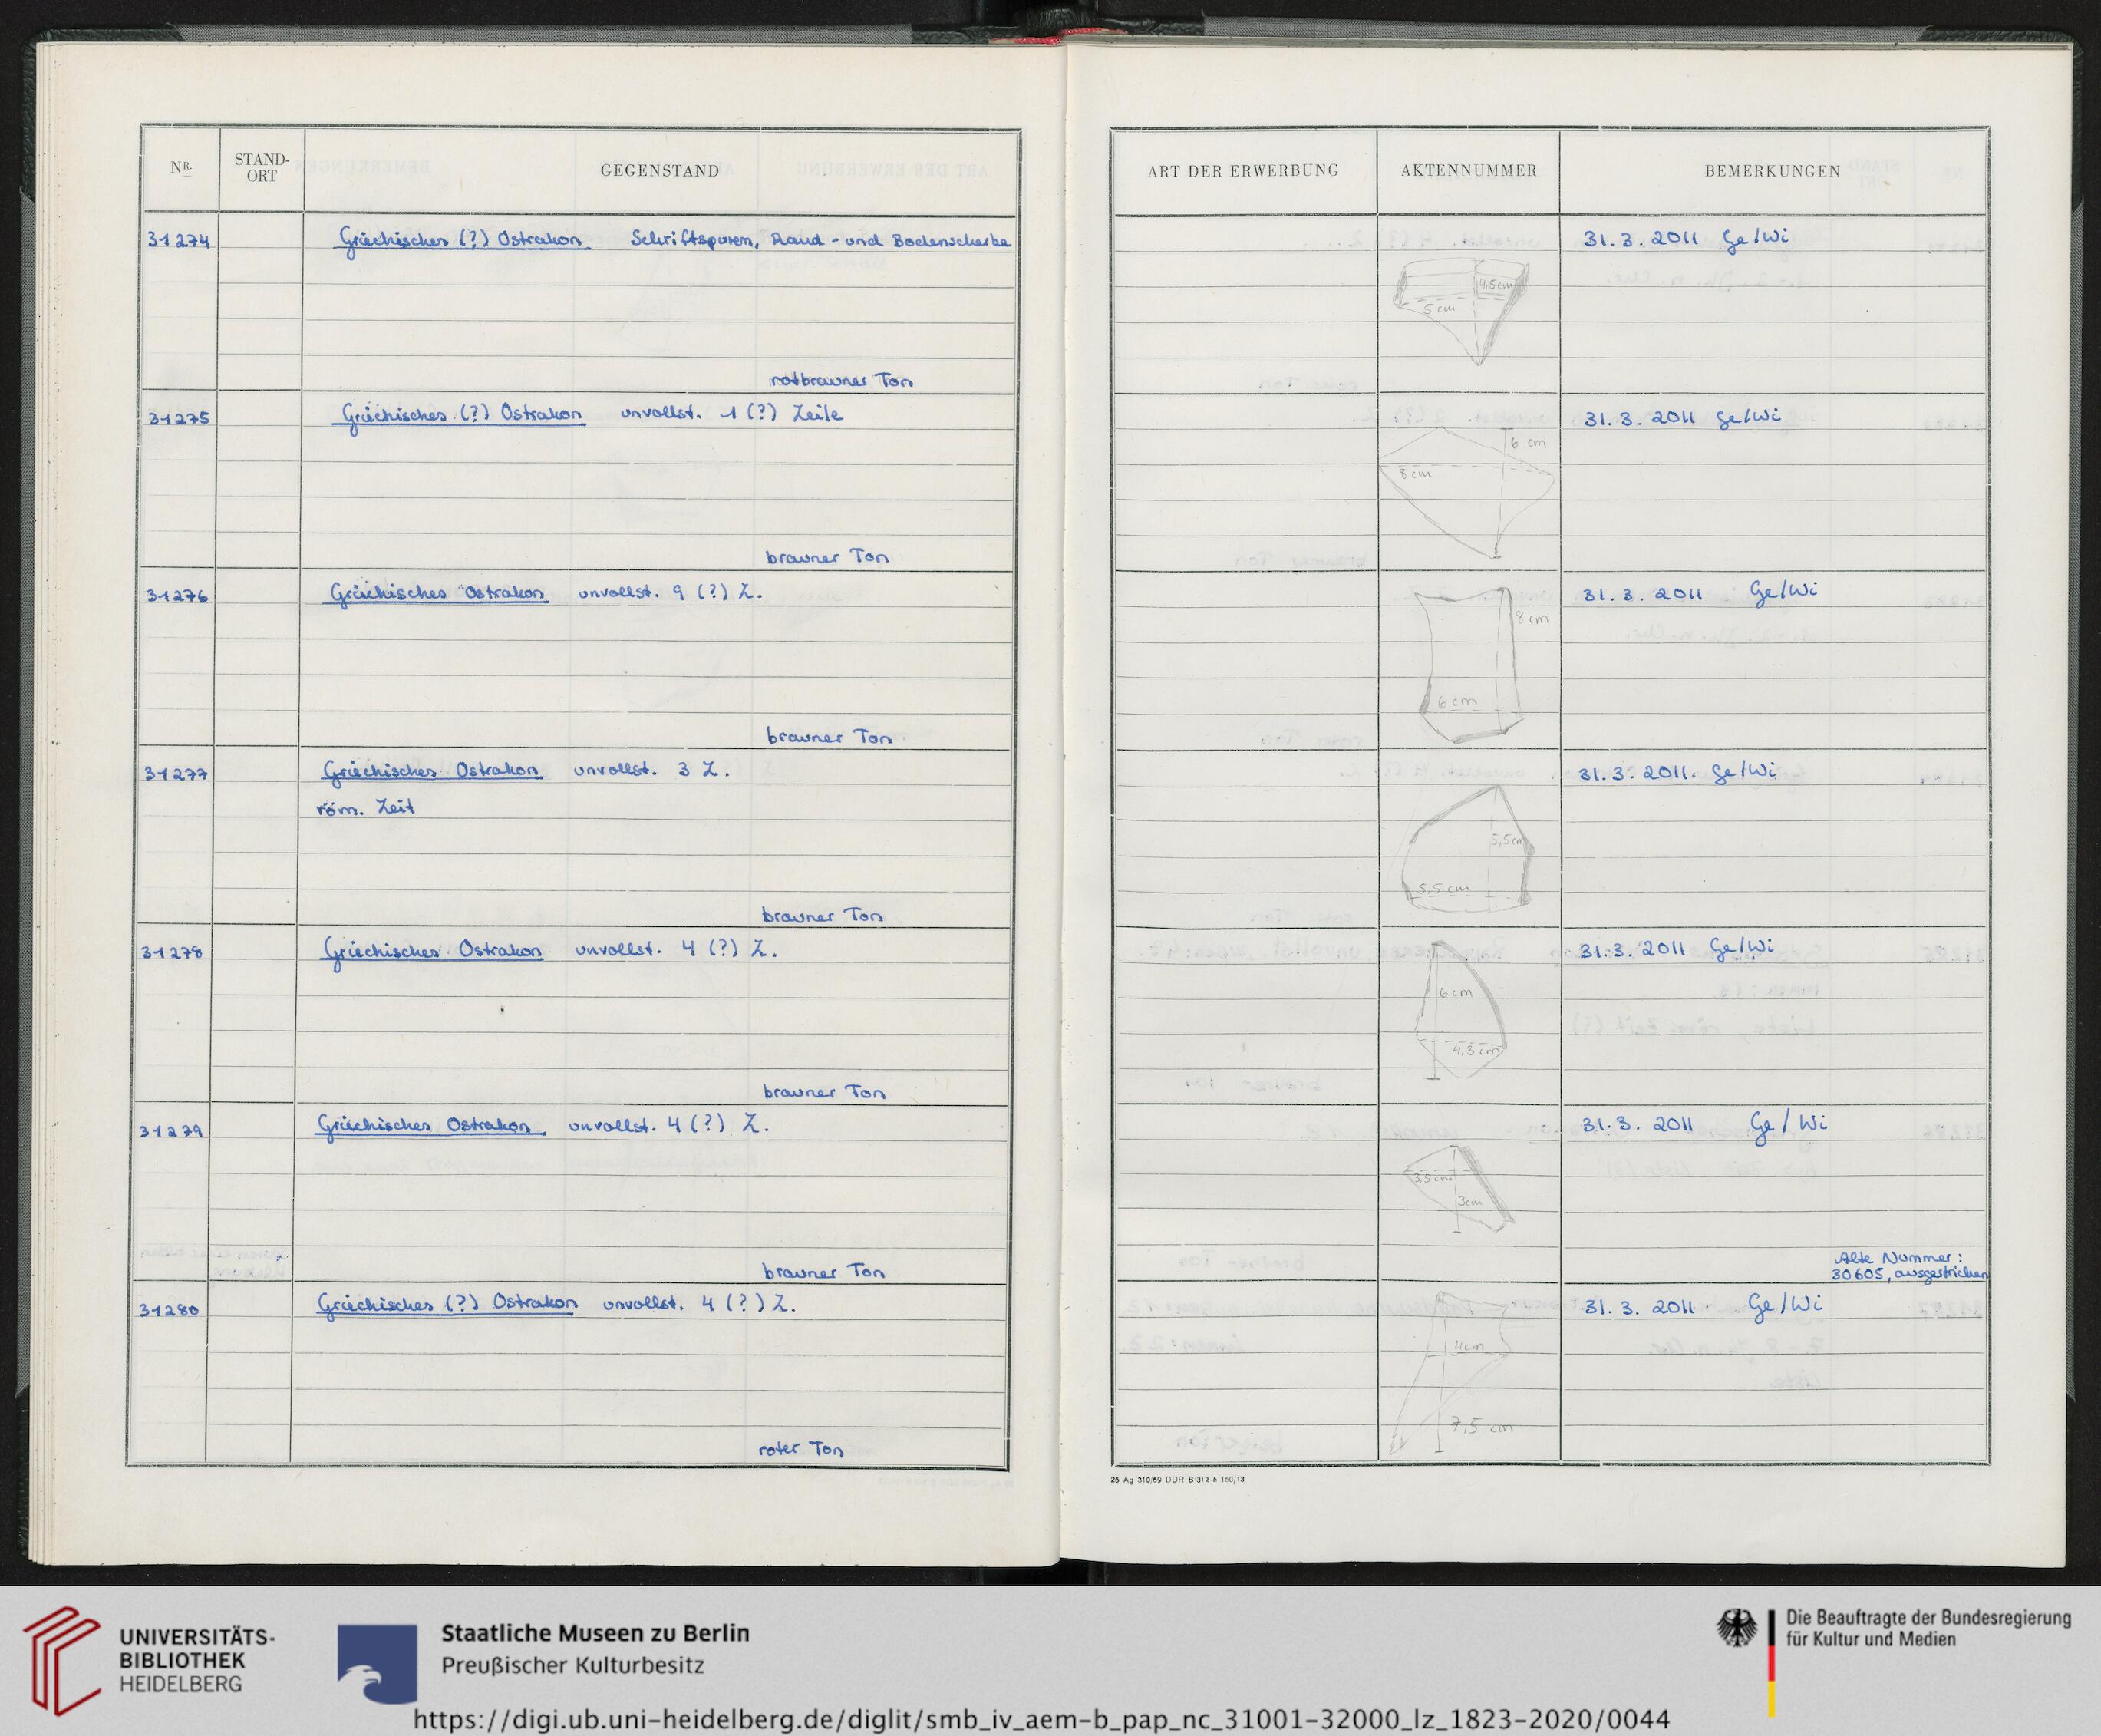 NR.
STAND-
ORT
GEGENSTAND
ART DER ERWERBUNG
AKTENNUMMER
BEMERKUNGEN
31274 Griechisches (?) Ostrakon Schriftspuren, Rand- und Bodenscherbe
31.3.2011 Ge/Wi
4,5cm
5 cm
rotbrauner Ton
31275 Griechisches (?) Ostrakon unvollst. 1 (?) Zeile
31.3.2011 Ge/Wi
6 cm
8 cm
brauner Ton
31276 Griechisches Ostrakon unvollst. 9 (?) Z.
31.3.2011 Ge/Wi
8 cm
6 cm
brauner Ton
31277 Griechisches Ostrakon unvollst. 3 Z.
31.3.2011. Ge/Wi
röm. Zeit
5,5cm
5,5 cm
brauner Ton
31278 Griechisches Ostrakon unvollst. 4 (?) Z.
31.3.2011 Ge/Wi
6cm
4,3 cm
brauner Ton
31279 Griechisches Ostrakon unvollst. 4 (?) Z.
31.3.2011 Ge/Wi
3,5 cm
3cm
brauner Ton
Alte Nummer:
30605, ausgestrichen
31280 Griechisches (?) Ostrakon unvollst. 4 (?) Z.
31.3.2011 Ge/Wi
4cm
7,5 cm
roter Ton
25 Ag 310/69 DDR B 312 b 150/13
UNIVERSITÄTS-
BIBLIOTHEK
HEIDELBERG
Staatliche Museen zu Berlin
Preußischer Kulturbesitz
Die Beauftragte der Bundesregierung
für Kultur und Medien
https://digi.ub.uni-heidelberg.de/diglit/smb_iv_aem-b_pap_nc_31001-32000_lz_1823-2020/0044